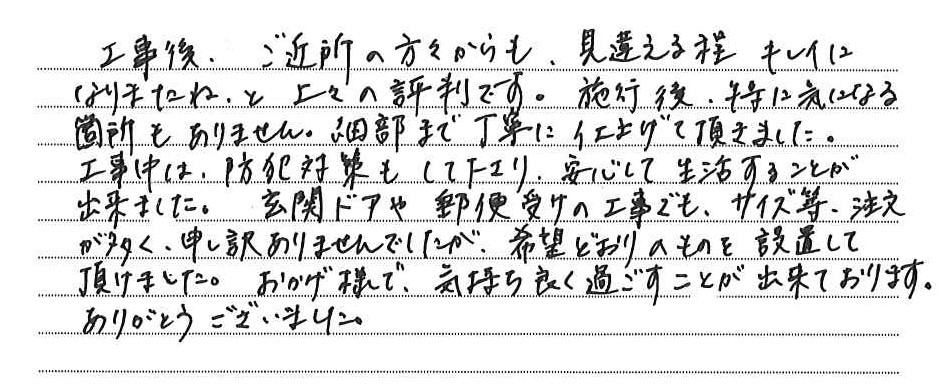 工事後、ご近所の方々からも、見違える程キレイに
なりましたね、と上々の評判です。施行後、特に気になる
箇所もありません。細部まで丁寧に仕上げて頂きました。
工事中は、防犯対策もして下さり、安心して生活することが
出来ました。玄関ドアや郵便受けの工事でも、サイズ等、注文
が多く、申し訳ありませんでしたが、希望どおりのものを設置して
頂けました。おかげ様で、気持ち良く過ごすことが出来ております。
ありがとうございました。